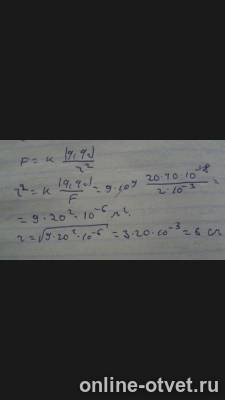 F = k |q₁q₂| / r²
r² = k |q₁q₂| / F = 9·10⁹ 20·40·10⁻¹⁸ / 2·10⁻³ =
= 9·20²·10⁻⁶ м².
r = √9·20²·10⁻⁶ = 3·20·10⁻³ = 6 см
online-otvet.ru